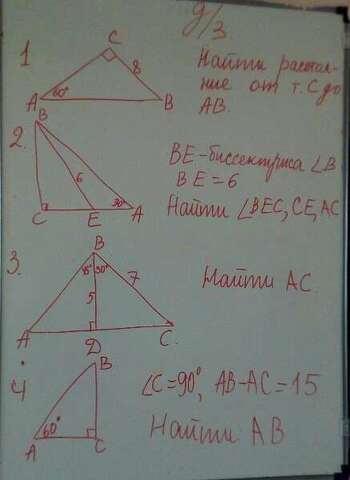 д/з
1
C
8
A 60° B
Найти расстоя-
ние от т. C до
AB.
2.
B
6
C E 30° A
BE-биссектриса ∠B
BE=6
Найти ∠BEC, CE, AC
3.
B
45° 30° 7
5
A D C.
Найти AC.
4
B
60°
A C
∠C=90°, AB-AC=15
Найти AB